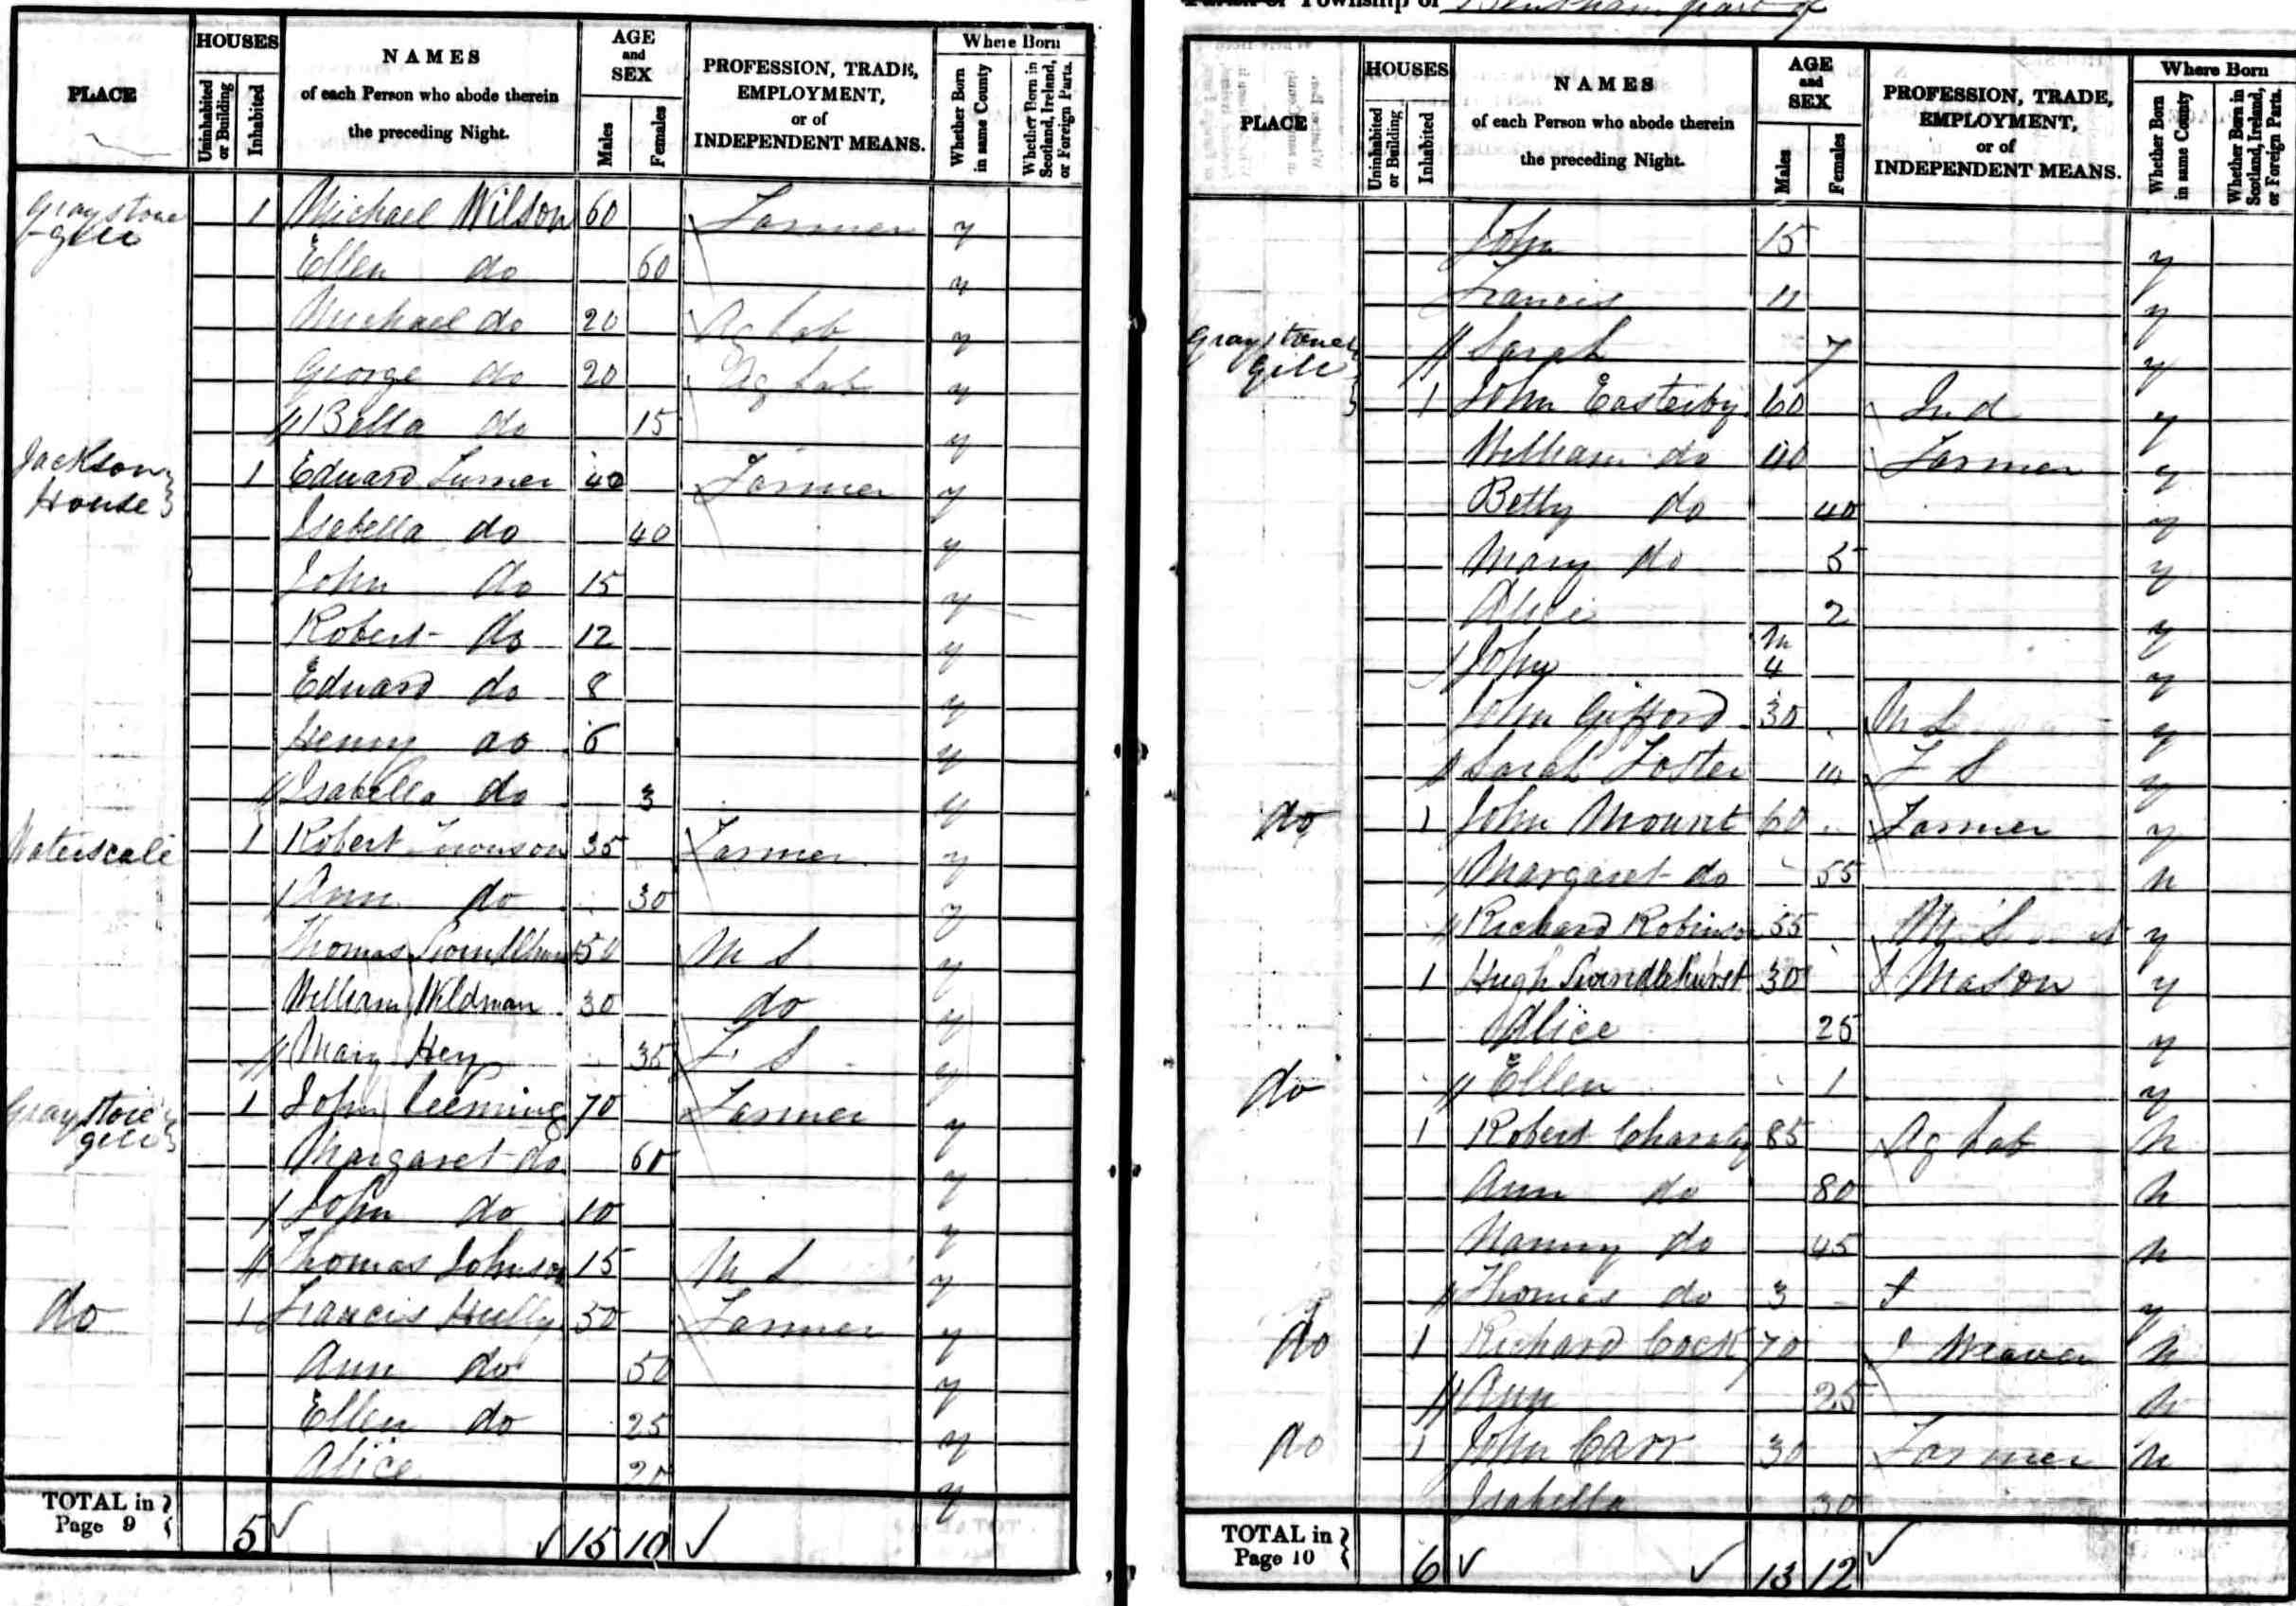 PLACE
HOUSES
Uninhabited or Building
Inhabited
NAMES
of each Person who abode therein
the preceding Night.
AGE
and
SEX
Males
Females
PROFESSION, TRADE,
EMPLOYMENT,
or of
INDEPENDENT MEANS.
Where Born
Whether Born in same County
Whether Born in Scotland, Ireland, or Foreign Parts.
Graystone 1 Michael Wilson 60 Farmer y
gill Ellen do 60 y
Michael do 20 Ag Lab y
George do 20 Ag Lab y
Bella do 15 y
Jackson 1 Edward Turner 40 Farmer y
House Isabella do 40 y
John do 15 y
Robert do 12 y
Edward do 8 y
Henry do 6 y
Isabella do 3 y
Waterscale 1 Robert 35 Farmer y
Ann do 30 y
Thomas 50 M S y
William Wildman 30 do y
Mary Key 35 F S y
Graystone 1 John Leeming 70 Farmer y
gill Margaret do 60 y
John do 10 y
Thomas Johnson 15 M S y
do 1 Francis Hully 50 Farmer y
Ann do 50 y
Ellen do 25 y
Alice 20 y
TOTAL in
Page 9 5 15 10
Township of part of
PLACE
HOUSES
Uninhabited or Building
Inhabited
NAMES
of each Person who abode therein
the preceding Night.
AGE
and
SEX
Males
Females
PROFESSION, TRADE,
EMPLOYMENT,
or of
INDEPENDENT MEANS.
Where Born
Whether Born in same County
Whether Born in Scotland, Ireland, or Foreign Parts.
John 15 y
Francis 11 y
Graystone Sarah 7 y
gill 1 John Easterby 60 Ind y
William do 40 Farmer y
Betty do 40 y
Mary do 5 y
Alice 2 y
John 4 m y
John Gifford 30 M S y
Sarah Foster F S y
do 1 John Mount 60 Farmer y
Margaret do 55 n
Richard Robinson 55 M S y
1 Hugh Swindlehurst 30 J Mason y
Alice 25 y
do Ellen 1 y
1 Robert Charnley 85 Ag Lab n
Ann do 80 n
Nanny do 45 n
Thomas do 3 y
do 1 Richard Cock 70 J Weaver n
Ann 25 n
do 1 John Carr 30 Farmer n
Isabella 30
TOTAL in
Page 10 6 13 12